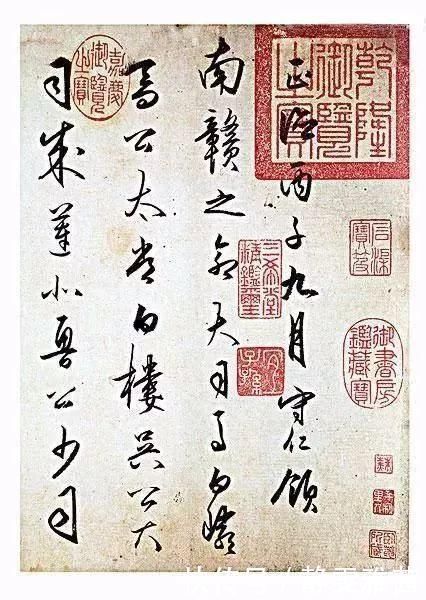 正德丙子九月守仁領
南贛之命大司馬白巖
喬公太常白樓吳公大
司成蓮北魯公少司
乾隆御覽之寶
石渠寶笈
御書房鑑藏寶
三希堂精鑑璽
宜子孫
嘉慶御覽之寶